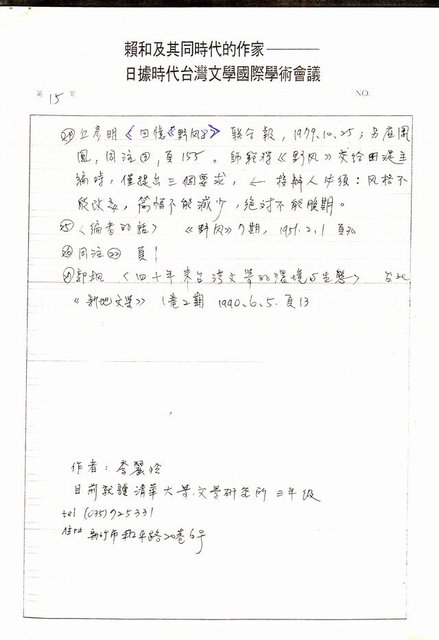 賴和及其同時代的作家——
日據時代台灣文學國際學術會議
第 15 頁 NO.
㉔ 丘彥明《回憶《野风》》聯合報，1979.10.25；另唐周
鳳，同注④，頁155。師範將《野风》交给田湜主
編時，僅提出三個要求，← 接辦人必須：风格不
能改变，篇幅不能減少，絕对不能脫期。
㉕〈編者的話〉《野风》7期，1951.2.1 頁
同注㉒ 頁1
郭楓〈四十年來台湾文學的環境与生態〉台北
《新地文學》1卷2期 1990.6.5.頁13
作者：李麗玲
目前就讀清華大學文學研究所三年级
tel (035)725331
住址 新竹市和平路20巷6号